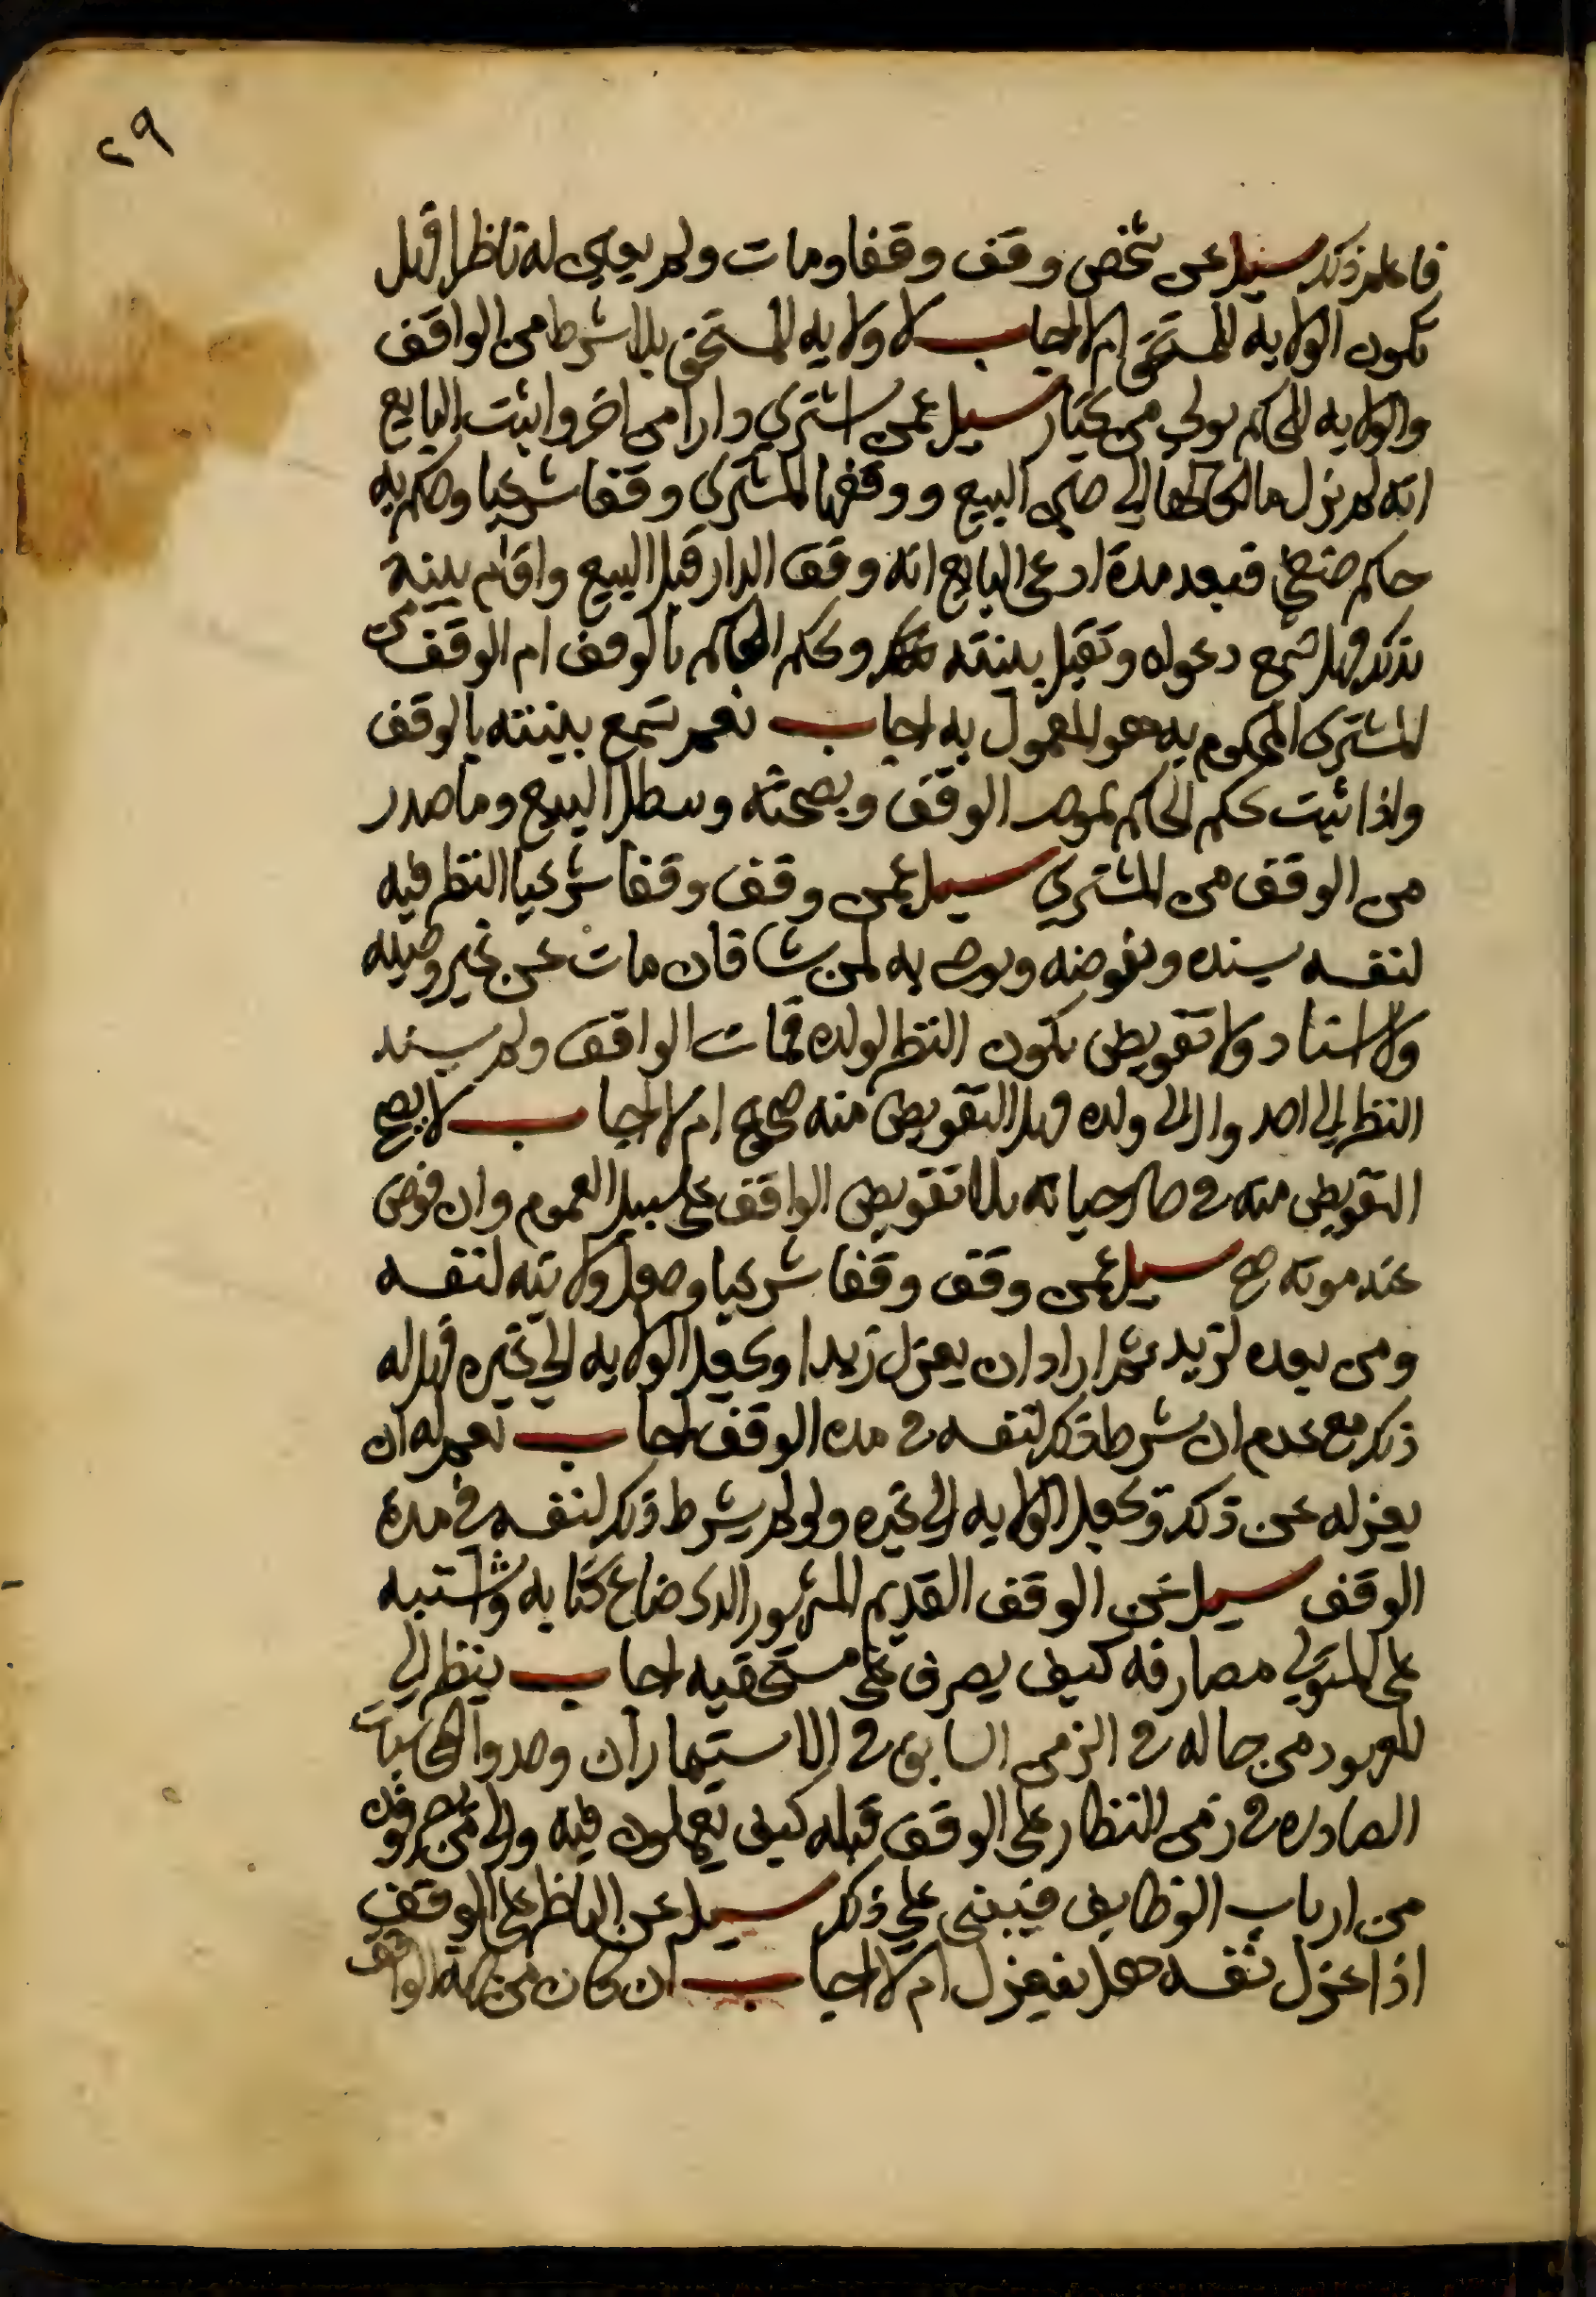 ٢٩
فاعلم ذلك سيل عن شخص وقف وقفا ومات ولم يعين له ناظرا فهل
تكون الولاية للمستحق ام لا اجاب لا ولايه للمستحق بلا شرط من الواقف
والولايه للحاكم يولي من يختار سيل عمن اشترى دارا من اخر واثبت البايع
انه لم تزل مالكا لها الي حين البيع ووقفها المشتري وقفا شرعيا وحكم به
حاكم حنفي فبعد مدة ادعى البايع انه وقف الدار قبل البيع واقام بينة
بذلك فهل تسمع دعواه وتقبل بينته ويحكم الحاكم بالوقف ام الوقف من
المشترى المحكوم به هو المعمول به اجاب نعم تسمع بينته بالوقف
واذا ثبت يحكم الحاكم بموجب الوقف وبصحته ويبطل البيع وما صدر
من الوقف من المشتري سيل عمن وقف وقفا شرعيا النظر فيه
لنفسه يسنده ويفوضه ويوصي به لمن شا فان مات عن غير وصيه
ولا اسناد ولا تفويض يكون النظر لولده فمات الواقف ولم يسند
النظر الي احد وال الى ولده فهل التفويض منه صحيح ام لا اجاب لا يصح
التفويض منه في حال حياته بلا تفويض الواقف على سبيل العموم وان فوض
عند موته صح سيل عمن وقف وقفا شرعيا وجعل ولايته لنفسه
ومن بعده لزيد ثم اراد ان يعزل زيدا ويجعل الولايه الي غيره فهل له
ذلك مع عدم ان شرط ذلك لنفسه في مدة الوقف اجاب نعم له ان
يعزله عن ذلك ويجعل الولايه الى غيره ولو لم يشرط ذلك لنفسه في مدة
الوقف سيل عن الوقف القديم المشهور الذى ضاع كتابه واشتبه
على المتولي مصارفه كيف يصرف على مستحقيه اجاب ينظر الي
المعهود من حاله في الزمن السابق في الاستيمارات وحدوا المحاسبات
الصادره في زمن النظار على الوقف قبله كيف يعملون فيه والى من يصرفون
من ارباب الوظايف فيبنى علي ذلك سيل عن الناظر على الوقف
اذا عزل نفسه هل ينعزل ام لا اجاب ان كان من جهة الواقف